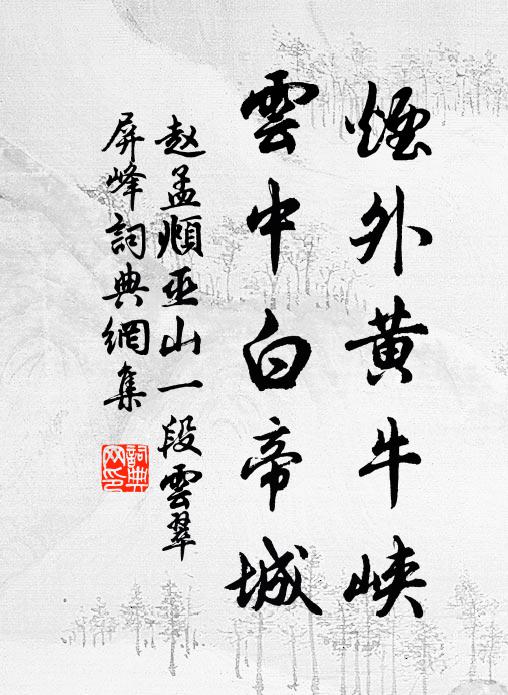 煙外黄牛峡
雲中白帝城
赵孟頫巫山一段雲翠
屏峰詞典網集
詞典
网印